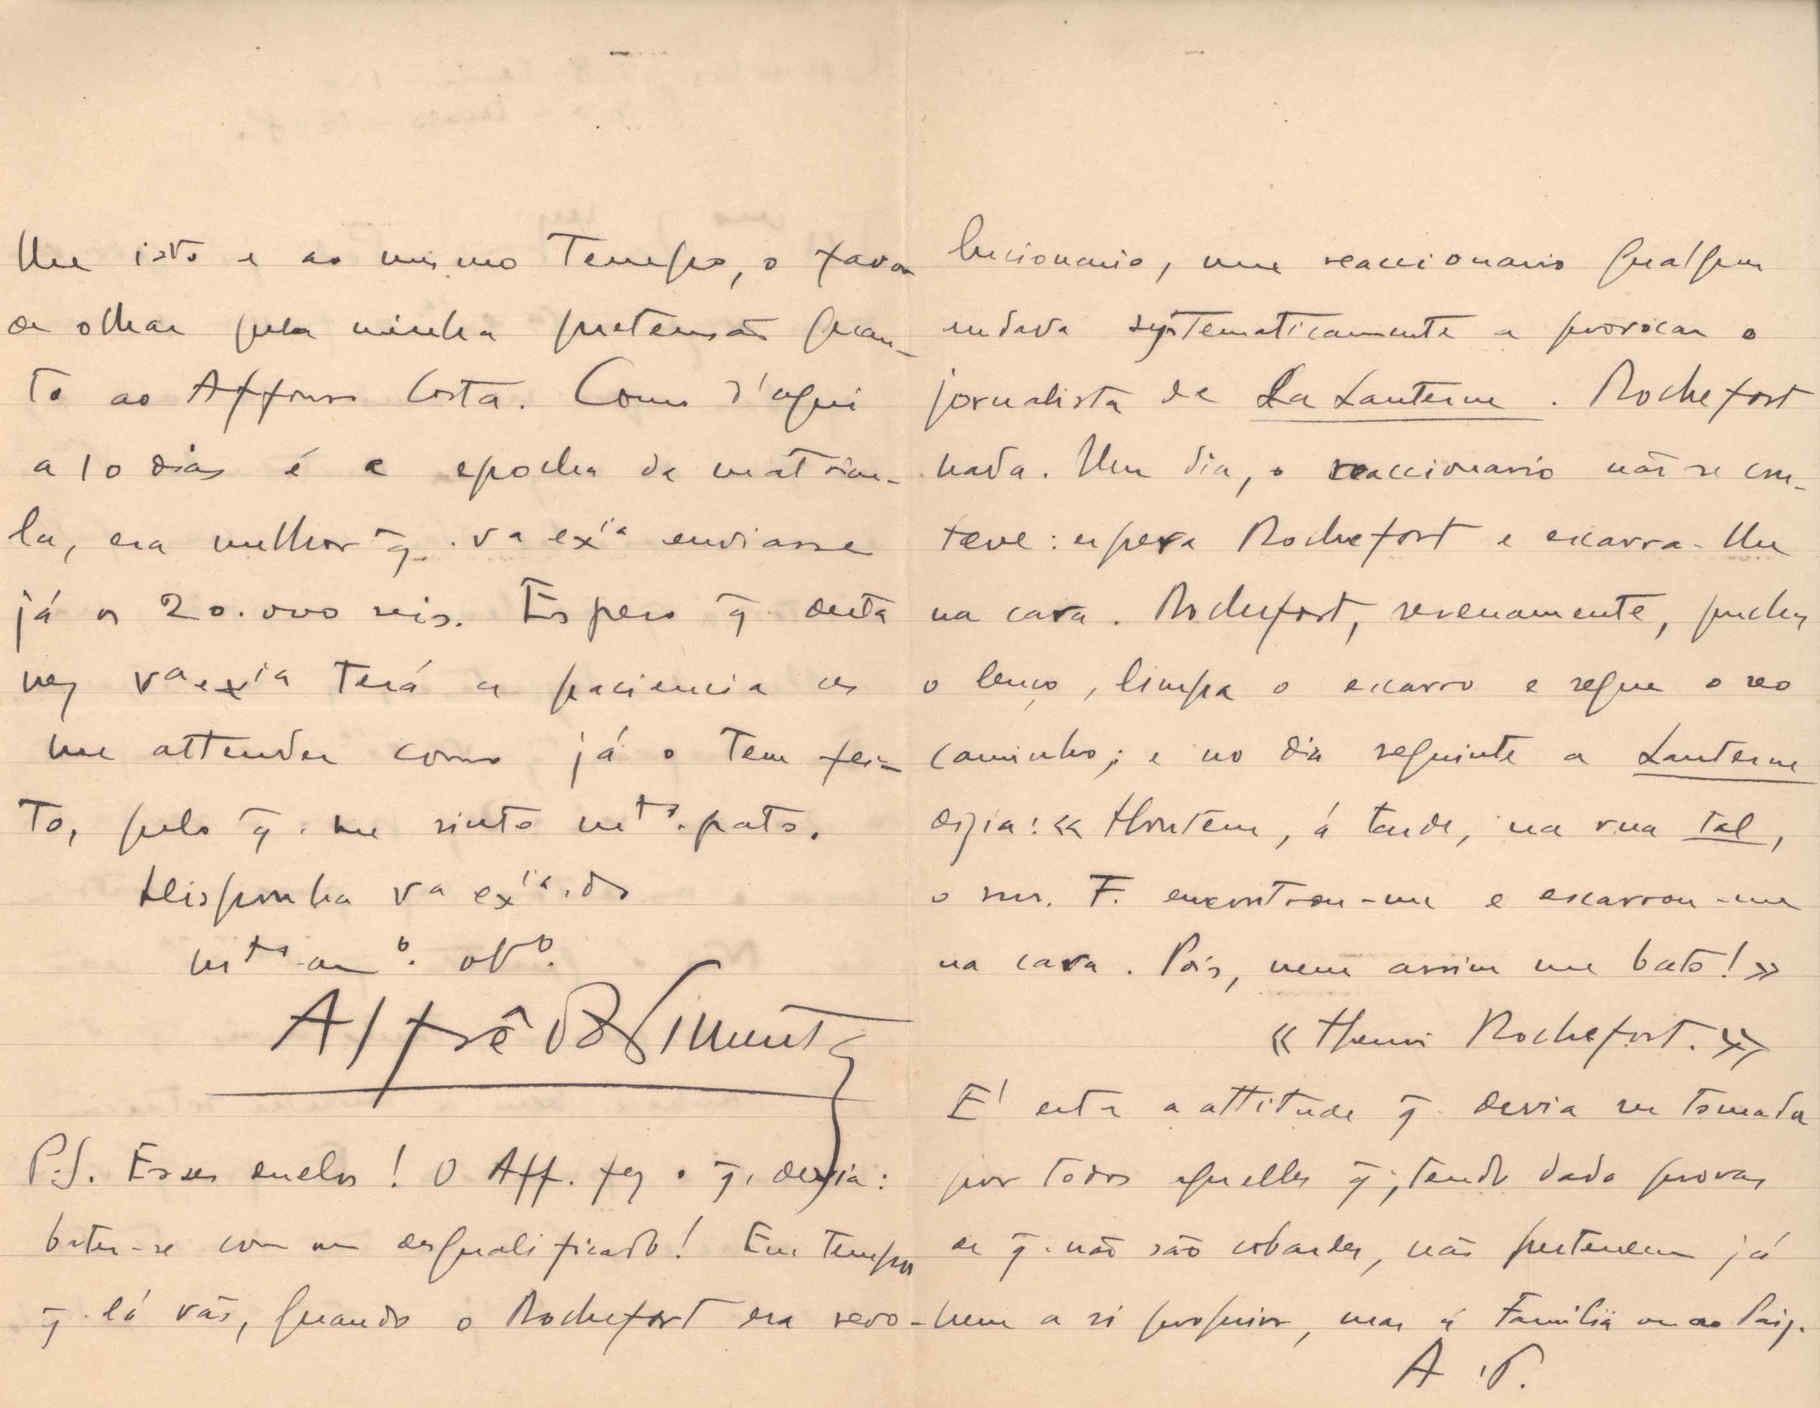 lhe isto e ao mesmo tempo, o favor
de olhar pela minha pretensão quan-
to ao Affonso Costa. Como d'aqui
a 10 dias é a epocha da matricu-
la, era melhor q̃. vª exⁱª enviasse
já os 20.000 reis. Espero q̃ desta
vez vª exⁱª terá a paciencia de
me attender como já o tem fei-
to, pelo q̃. me sinto mᵗº. grato.
Disponha vª exⁱª. do
mᵗº amº. obº.
Alfrêdo Pimenta
P.S. Esses duelos! O Aff. fez o q̃. devia:
bater-se com um desqualificado! Em tempos
q̃ lá vão, quando o Rochefort era revo-
lucionario, um reaccionario qualquer
andava systematicamente a provocar o
jornalista da La Lanterne. Rochefort
nada. Um dia, o reaccionario não se con-
teve: espera Rochefort e escarra-lhe
na cara. Rochefort, serenamente, puchou
o lenço, limpa o escarro e segue o seo
caminho; e no dia seguinte a Lanterne
dizia: « Hontem, á tarde, na rua tal,
o snr. F. encontrou-me e escarrou-me
na cara. Pois, nem assim me bato! »
« Henri Rochefort. »
E' esta a attitude q̃. devia ser tomada
por todos aquelles q̃., tendo dado provas
de q̃. não são cobardes, não pertencem já
nem a si proprios, mas á Familia ou ao Paiz.
A. P.